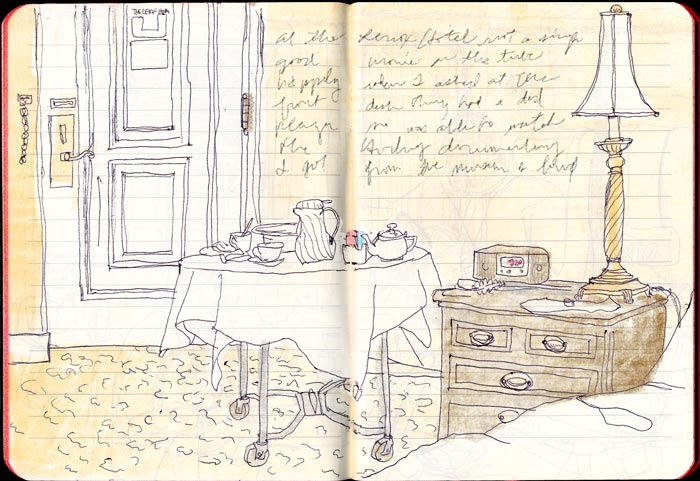 THE LENOX
at the Lenox Hotel not a single
good movie on the tube
happily when I asked at the
front desk they had a dvd
player was able to watch
the documentary
I got from the museum &